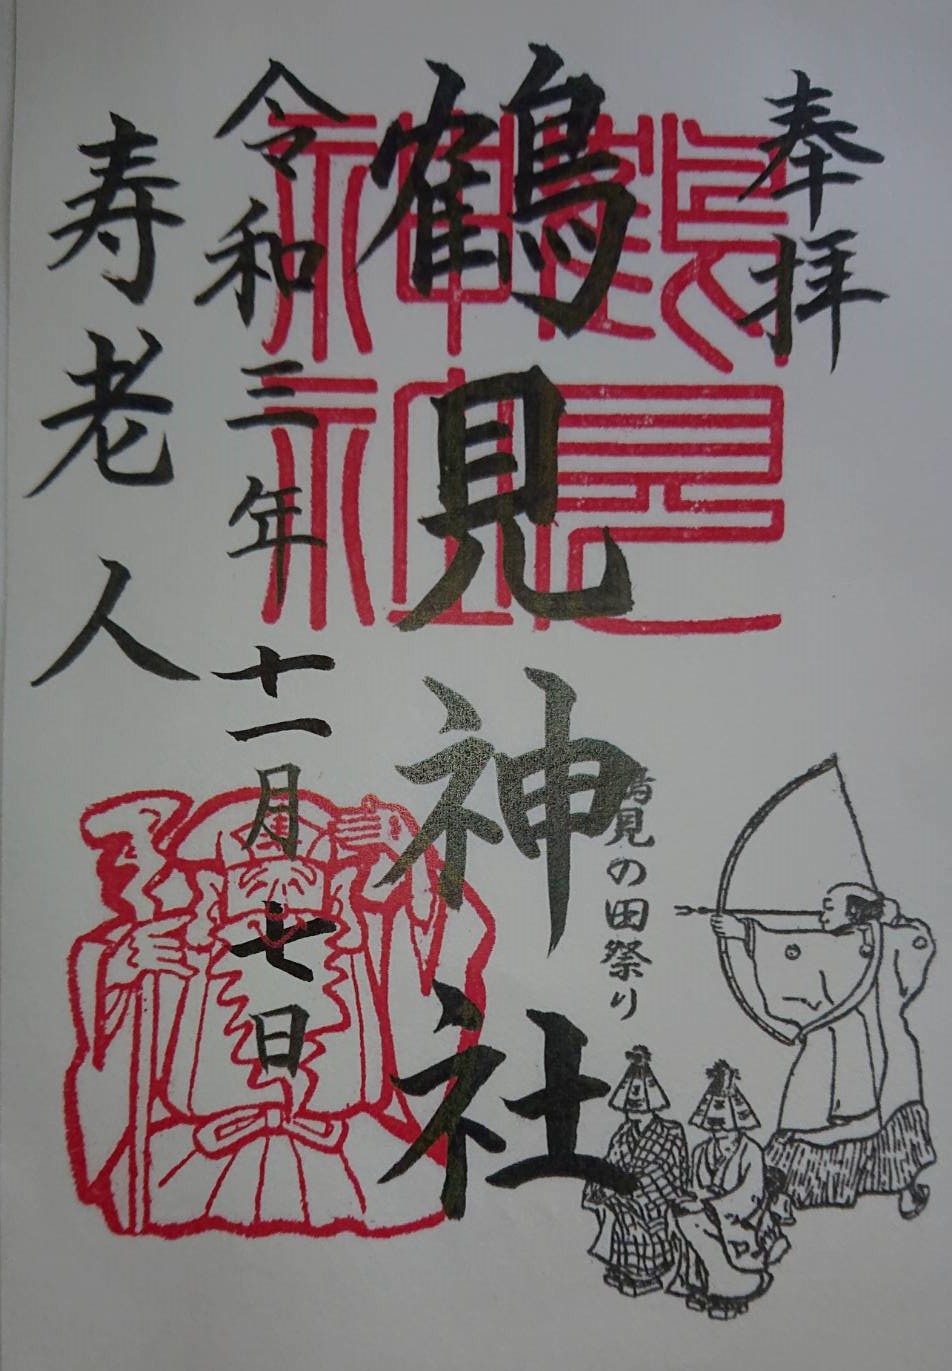 奉拝
鶴見神社
鶴見の田祭り
令和三年十一月七日
寿老人
鶴見神社神社